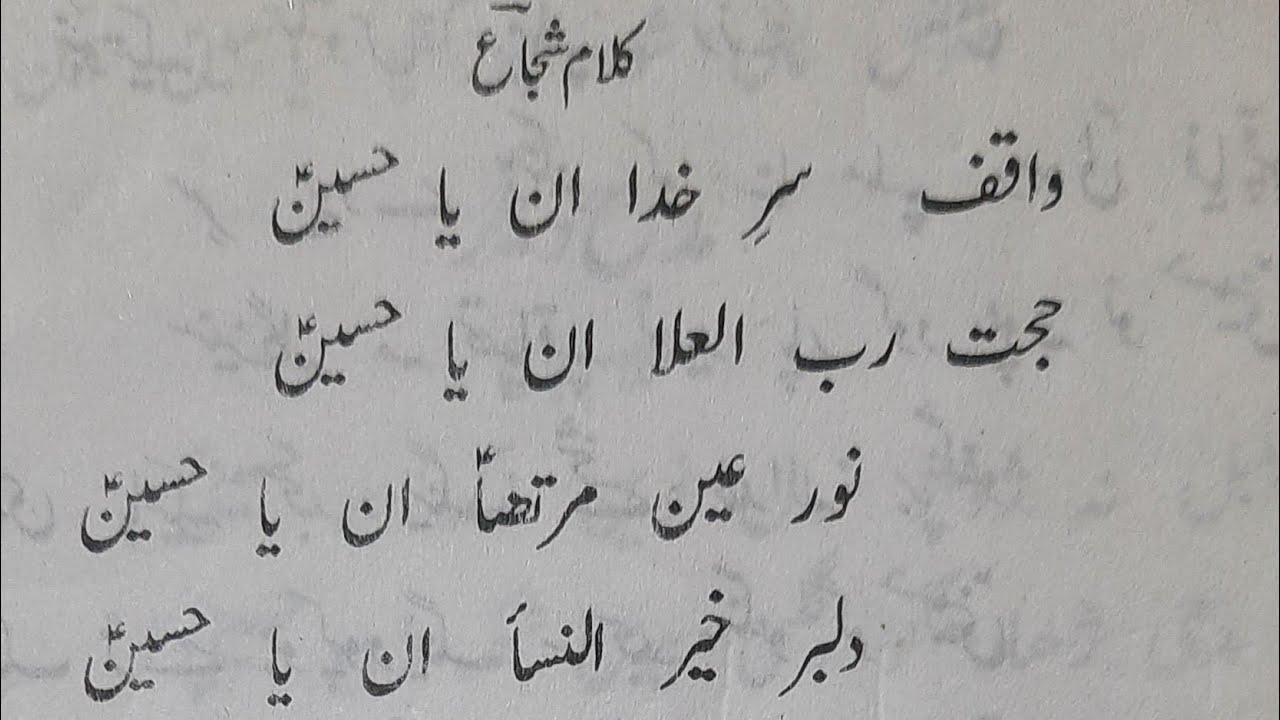 کلام شجاع
واقف سرِ خدا ان یا حسینؑ
حجت رب العلا ان یا حسینؑ
نور عین مرتضاؑ ان یا حسینؑ
دلبر خیر النسأ ان یا حسینؑ